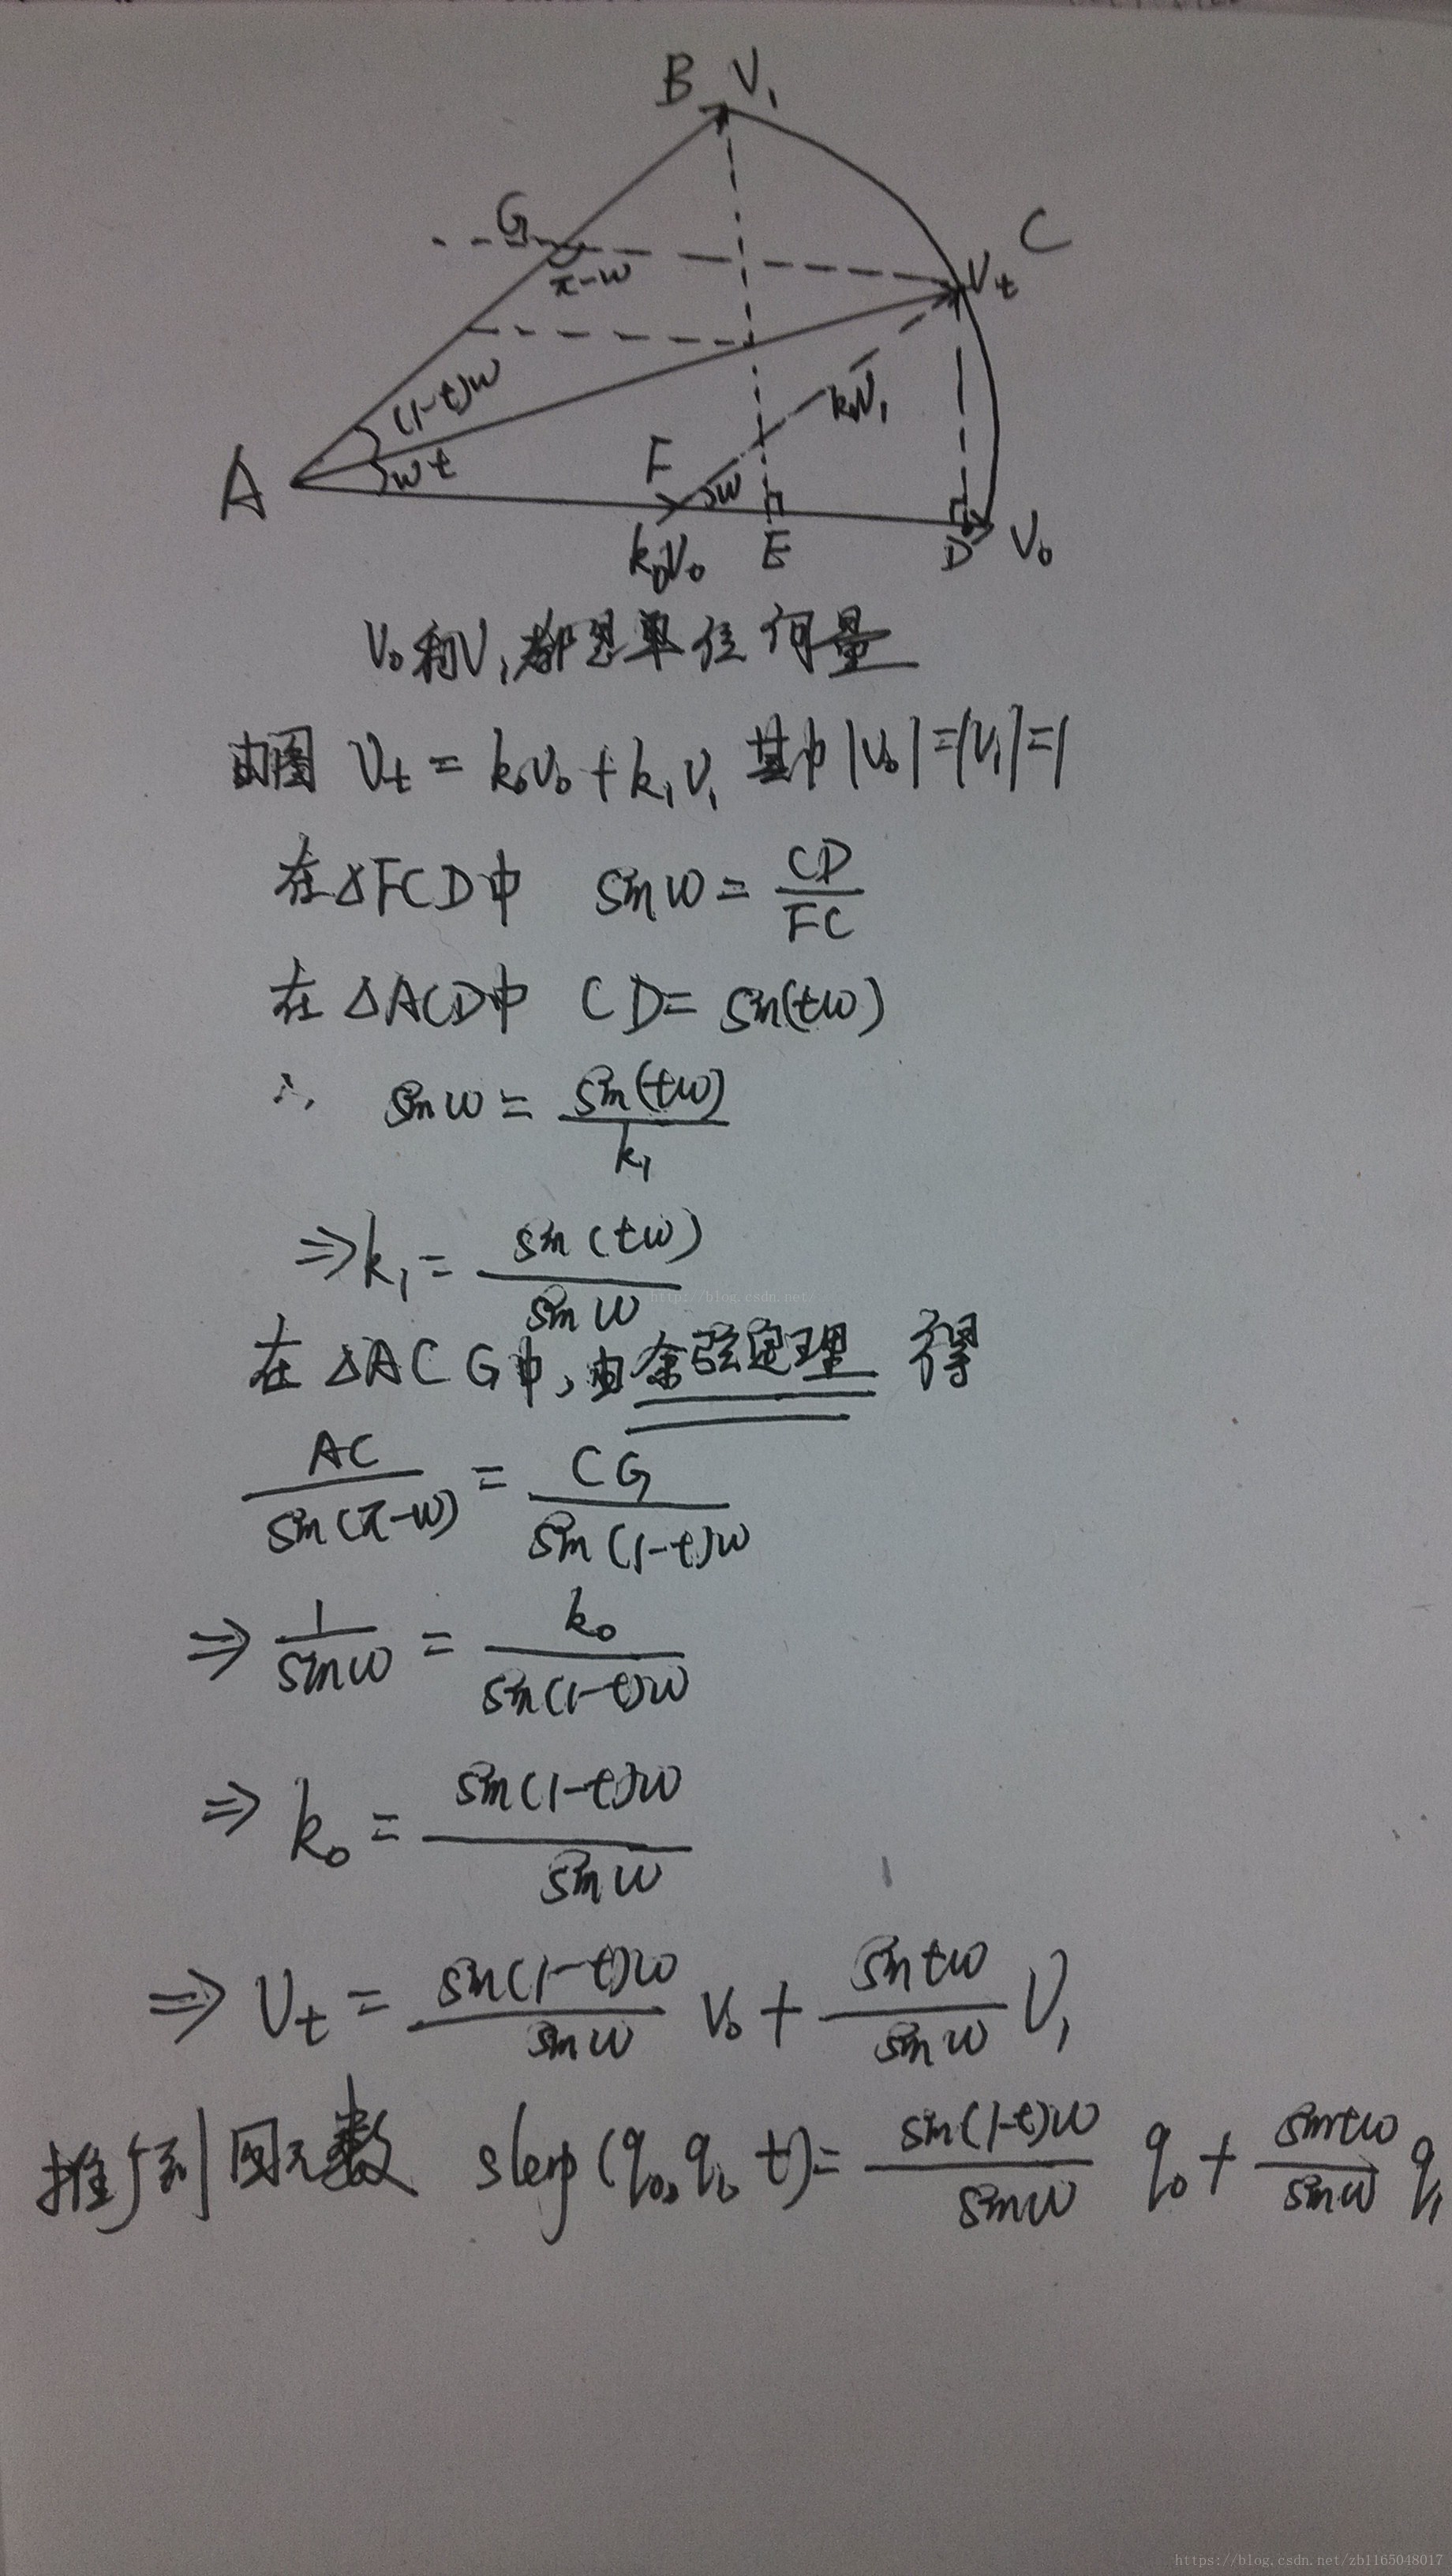 B V₁
G
C
π-w
Vt
(1-t)w
k₁V₁
A
wt
F
w
k₀V₀
E
D
V₀
V₀和V₁都是单位向量
由图 Vt = k₀V₀ + k₁V₁ 其中|V₀|=|V₁|=1
在△FCD中 sin w = CD/FC
在△ACD中 CD = sin(tw)
∴ sin w = sin(tw)/k₁
⇒ k₁ = sin(tw)/sin w
http://blog.csdn.net/
在△ACG中,由余弦定理 得
AC/sin(π-w) = CG/sin(1-t)w
⇒ 1/sin w = k₀/sin(1-t)w
⇒ k₀ = sin(1-t)w/sin w
⇒ Vt = sin(1-t)w/sin w V₀ + sin tw/sin w V₁
推广到四元数 slerp(q₀, q₁, t) = sin(1-t)w/sin w q₀ + sin tw/sin w q₁
https://blog.csdn.net/zb1165048017